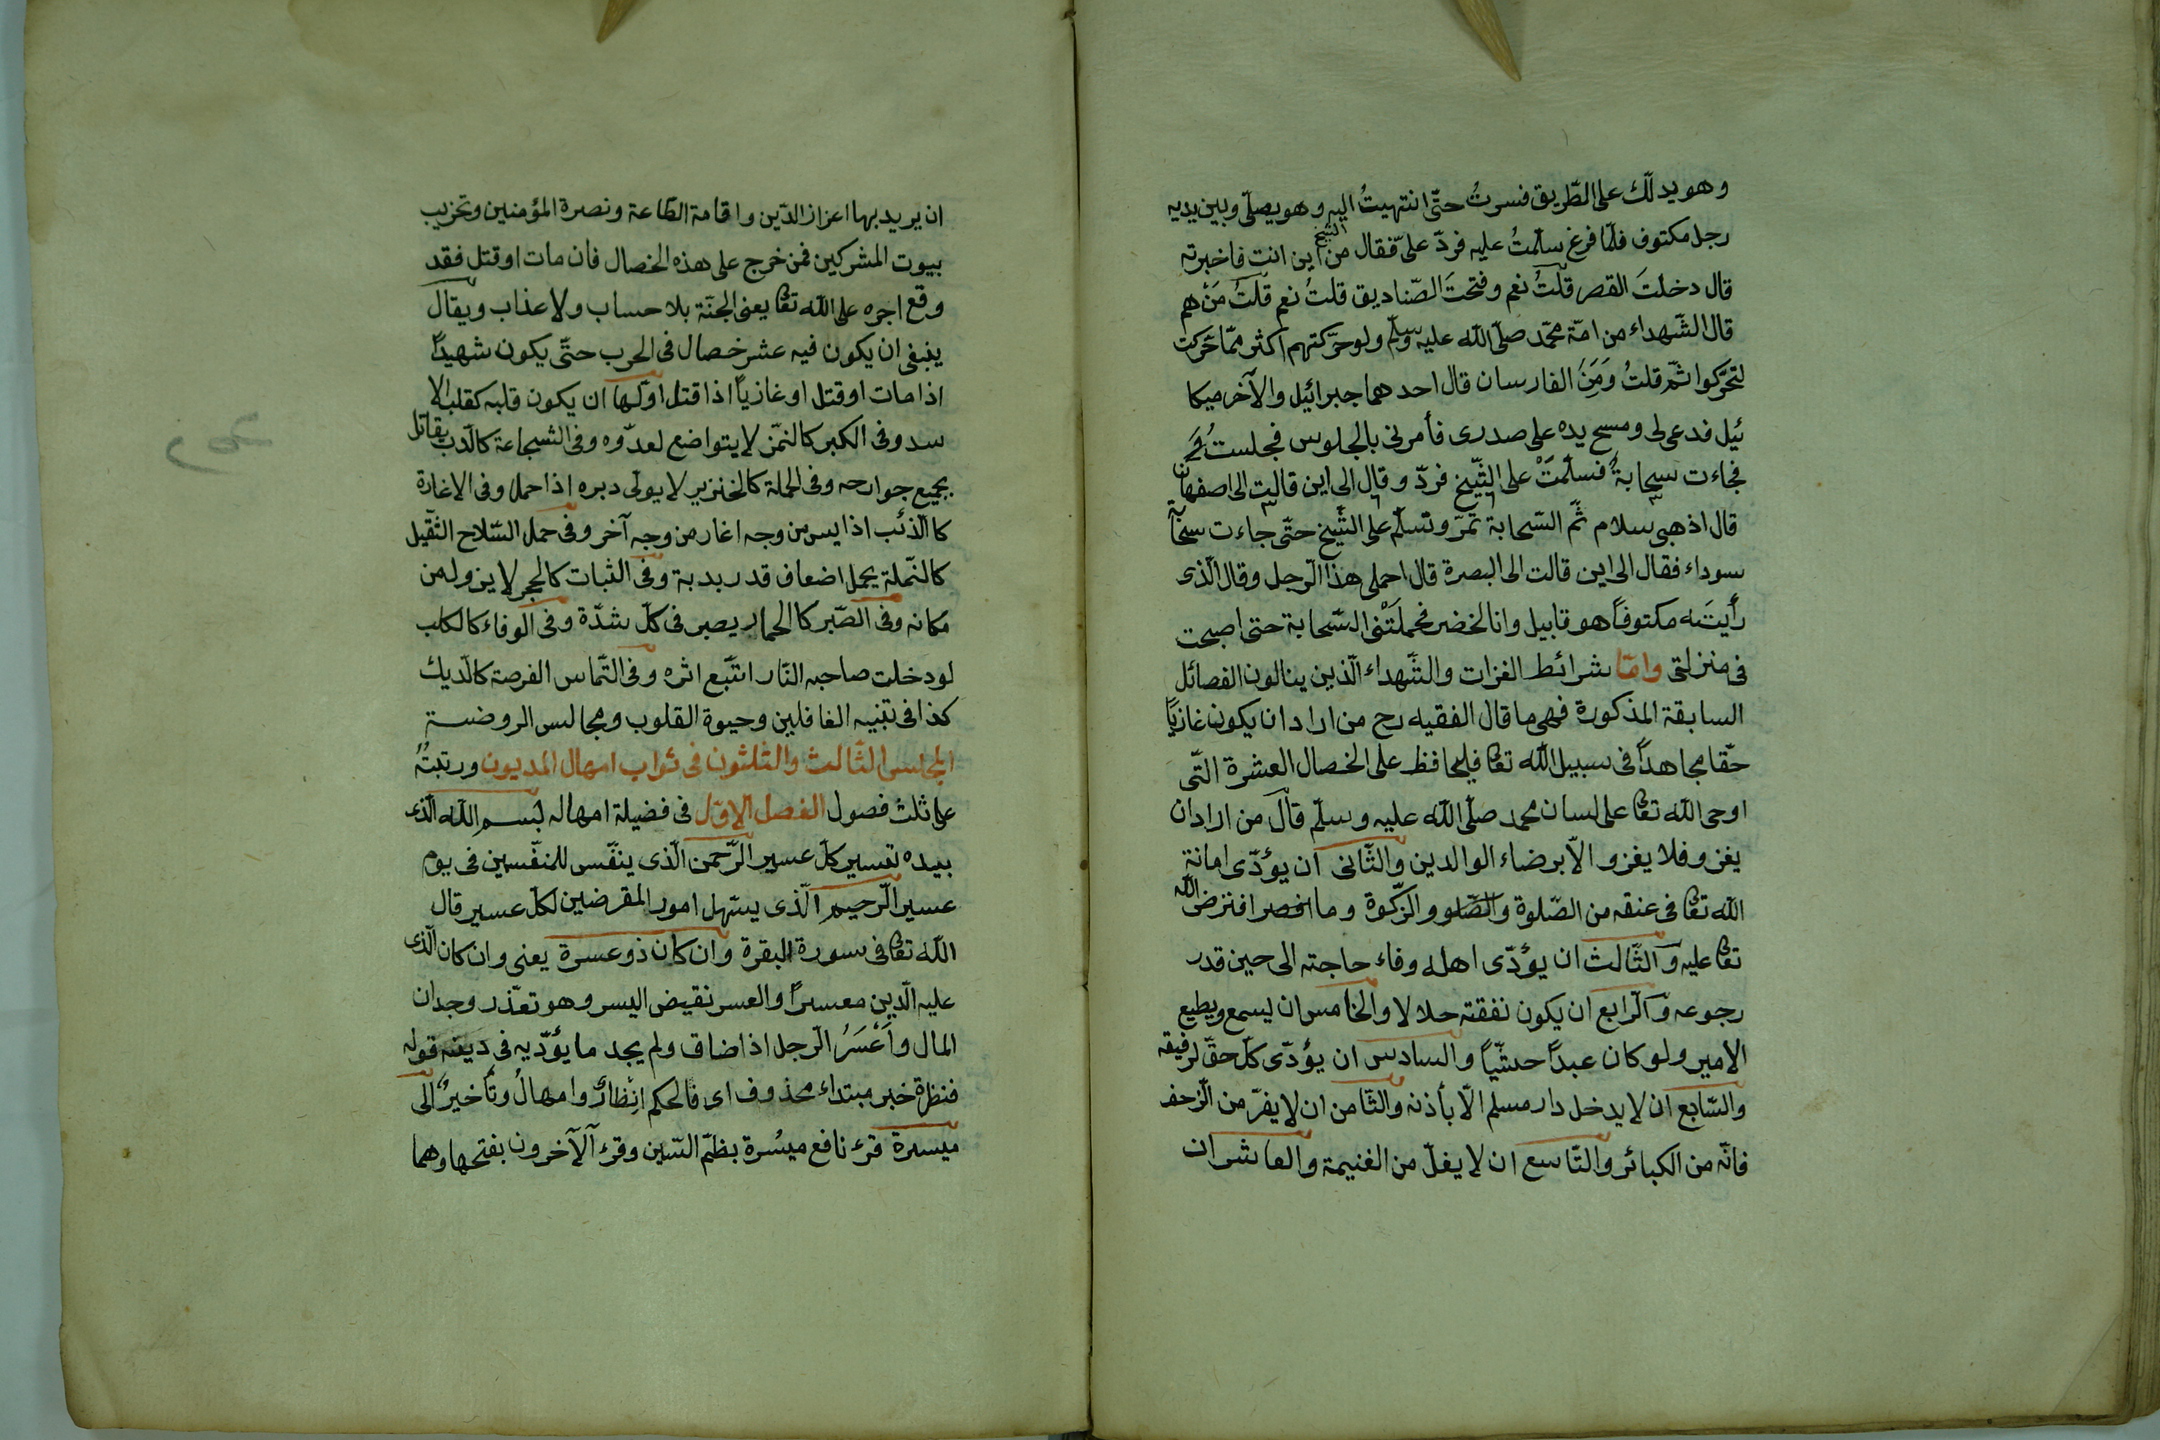 وهو يدلّك على الطّريق فسرتُ حتّى انتهيتُ اليه وهو يصلّى وبين يديه
رجل مكتوف فلمّا فرغ سلّمتُ عليه فردّ علىّ فقال الشيخ من اين انت فاخبرته
قال دخلتَ القصر قلتُ نعم وفتحتَ الصّناديق قلتُ نعم قلتُ مَنْ هم
قال الشّهداء من امّة محمّد صلّى اللّه عليه وسلّم ولو حرّكتهم اكثر ممّا حرّكت
لتحرّكوا ثمّ قلتُ وَمَنِ الفارسان قال احدهما جبرائيل والآخر ميكا
ئيل فدعى لى ومسح يده على صدرى فأمرنى بالجلوس فجلستُ
فجاءت سحابةٌ فسلّمَتْ على الشّيخ فردّ وقال الى اين قالت الى اصفهان
قال اذهبى بسلام ثمّ السّحابة تمرّ وتسلّم على الشّيخ حتّى جاءت سحابة
سوداء فقال الى اين قالت الى البصرة قال احملى هذا الرّجل وقال الّذى
رأيتَه مكتوفاً هو قابيل وانا الخضر فحملَتْنى السّحابة حتى اصبحت
فى منزلتى وامّا شرائط الغزات والشّهداء الّذين ينالون الفضائل
السابقة المذكورة فهى ما قال الفقيه رح من اراد ان يكون غازيًا
حقّا مجاهداً فى سبيل اللّه تعا فليحافظ على الخصال العشرة التّى
اوحى اللّه تعا على لسان محمد صلّى اللّه عليه وسلّم قال من اراد ان
يغزو فلا يغزو الاّ برضاء الوالدين والثّانى ان يؤدّى امانة
اللّه تعا فى عنقه من الصّلوة والصّلو والزّكوة وما افترض اللّه
تعا عليه والثّالث ان يؤدّى اهله وفاء حاجته الى حين قدر
رجوعه والرّابع ان يكون نفقته حلالا والخامس ان يسمع ويطيع
الامير ولو كان عبداً حبشّيًا والسادس ان يؤدّى كلّ حقّ لرفيقه
والسّابع ان لا يدخل دار مسلم الاّ بأذنه والثّامن ان لا يفرّ من الزّحف
فانّه من الكبائر والتّاسع ان لا يغلّ من الغنيمة والعاشر ان
ان يريد بها اعزاز الدّين واقامة الطّاعة ونصرة المؤمنين وتخريب
بيوت المشركين فمن خرج على هذه الخصال فان مات او قتل فقد
وقع اجره على اللّه تعا يعنى الجنّة بلا حساب ولا عذاب ويقال
ينبغى ان يكون فيه عشر خصال فى الحرب حتّى يكون شهيداً
اذا مات او قتل او غازياً اذا قتل اوّلها ان يكون قلبه كقلب الا
سد وفى الكبر كالنمّر لا يتواضع لعدّوه وفى الشّجاعة كالدّب يقاتل
بجميع جوارحه وفى الحملة كالخنزير لا يولّى دبره اذا حمل وفى الاغارة
كالذّئب اذا يس من وجه اغار من وجه آخر وفى حمل السّلاح الثّقيل
كالنّملة يحمل اضعاف قدر بدنة وفى الثبات كالحجر لا يزول من
مكانه وفى الصّبر كا الحمار يصبر فى كلّ شدّة وفى الوفاء كالكلب
لو دخلت صاحبه النّار اتّبع اثره وفى التّماس الفرصة كالدّيك
كذا فى تنبيه الغافلين وحيوة القلوب ومجالس الروضة
المجلس الثّالث والثّلثون فى ثواب امهال المديون ورتبتُهُ
على ثلث فصول الفصل الاوّل فى فضيلة امهاله بسم اللّه الّذى
بيده تعسير كلّ عسير الرّحمن الّذى ينفّس للمنفّسين فى يوم
عسير الرّحيم الّذى يسّهل امور المقرضين لكلّ عسير قال
اللّه تعا فى سورة البقرة وان كان ذو عسرة يعنى وان كان الّذى
عليه الّدين معسراً والعسر نقيض اليسر وهو تعذّر وجدان
المال وأَعْسَرُ الرّجل اذا ضاق ولم يجد ما يؤدّيه فى دينه قوله
فنظرة خبر مبتداء محذوف اى فالحكم انْظارٌ وامهالٌ وتأخيرٌ الى
ميسرة قرء نافع ميسُرة بظمّ السّين وقرء الآخرون بفتحها وهما